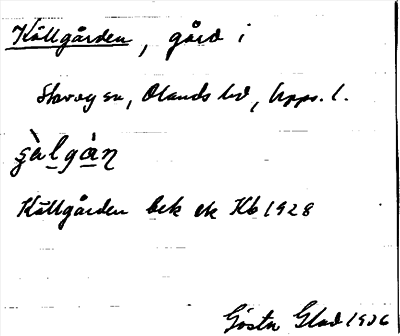 Källgården, gård i
Skoug sn, Olands hd, Upps. l.
ʂàlgàṇ
Källgården bek ek Kb 1928
Gösta Glad 1926